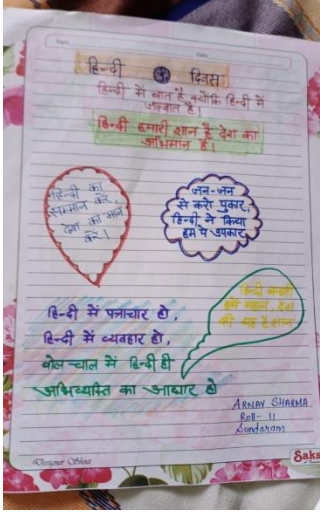 हिन्दी दिवस
हिन्दी में बात है क्योंकि हिन्दी में
जज़्बात है।
हिन्दी हमारी शान है देश का
अभिमान है।
हिन्दी का
सम्मान करें,
देश का मान
करें।
जन-जन
से करो पुकार,
हिन्दी ने किया
हम पे उपकार
हिन्दी
महान, देश
की यह है शान
हिन्दी में पत्राचार हो,
हिन्दी में व्यवहार हो,
बोल-चाल में हिन्दी ही
अभिव्यक्ति का आधार हो
ARNAV SHARMA
Roll- 11
Sundaram
Designer Sheet
Saks